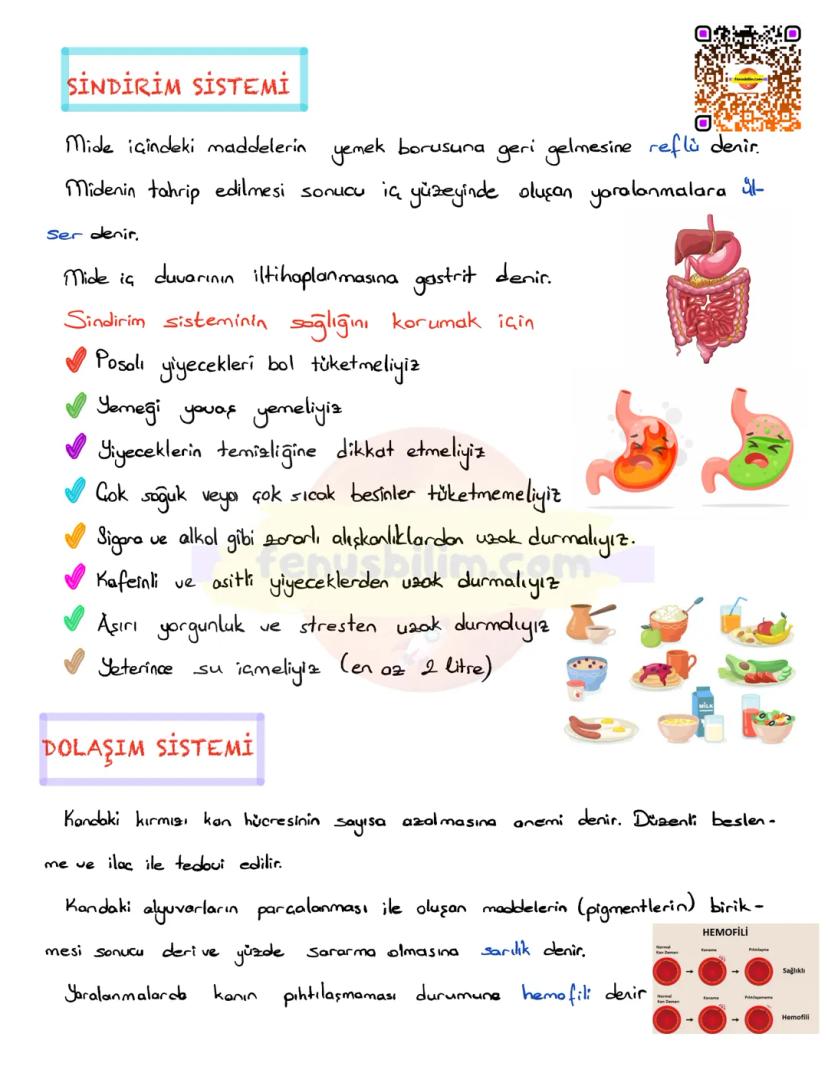 SİNDİRİM SİSTEMİ
fenusbilim.com
Mide içindeki maddelerin yemek borusuna geri gelmesine reflü denir.
Midenin tahrip edilmesi sonucu iç yüzeyinde oluşan yaralanmalara ül-
ser denir.
Mide iç duvarının iltihaplanmasına gastrit denir.
Sindirim sisteminin sağlığını korumak için
Posalı yiyecekleri bol tüketmeliyiz
Yemeği yavaş yemeliyiz
Yiyeceklerin temizliğine dikkat etmeliyiz
Çok soğuk veya çok sıcak besinler tüketmemeliyiz
Sigara ve alkol gibi zararlı alışkanlıklardan uzak durmalıyız.
fenusbilim.com
Kafeinli ve asitli yiyeceklerden uzak durmalıyız
Aşırı yorgunluk ve stresten uzak durmalıyız
Yeterince su içmeliyiz (en az 2 litre)
MİLK
DOLAŞIM SİSTEMİ
Kandaki kırmızı kan hücresinin sayısa azalmasına anemi denir. Düzenli beslen-
me ve ilaç ile tedavi edilir.
Kandaki alyuvarların parçalanması ile oluşan maddelerin (pigmentlerin) birik-
mesi sonucu deri ve yüzde sararma olmasına sarılık denir.
Yaralanmalarda kanın pıhtılaşmaması durumuna hemofili denir
HEMOFİLİ
Normal Kan Damarı Kanama Pıhtılaşma
Sağlıklı
Normal Kan Damarı Kanama Pıhtılaşmama
Hemofili